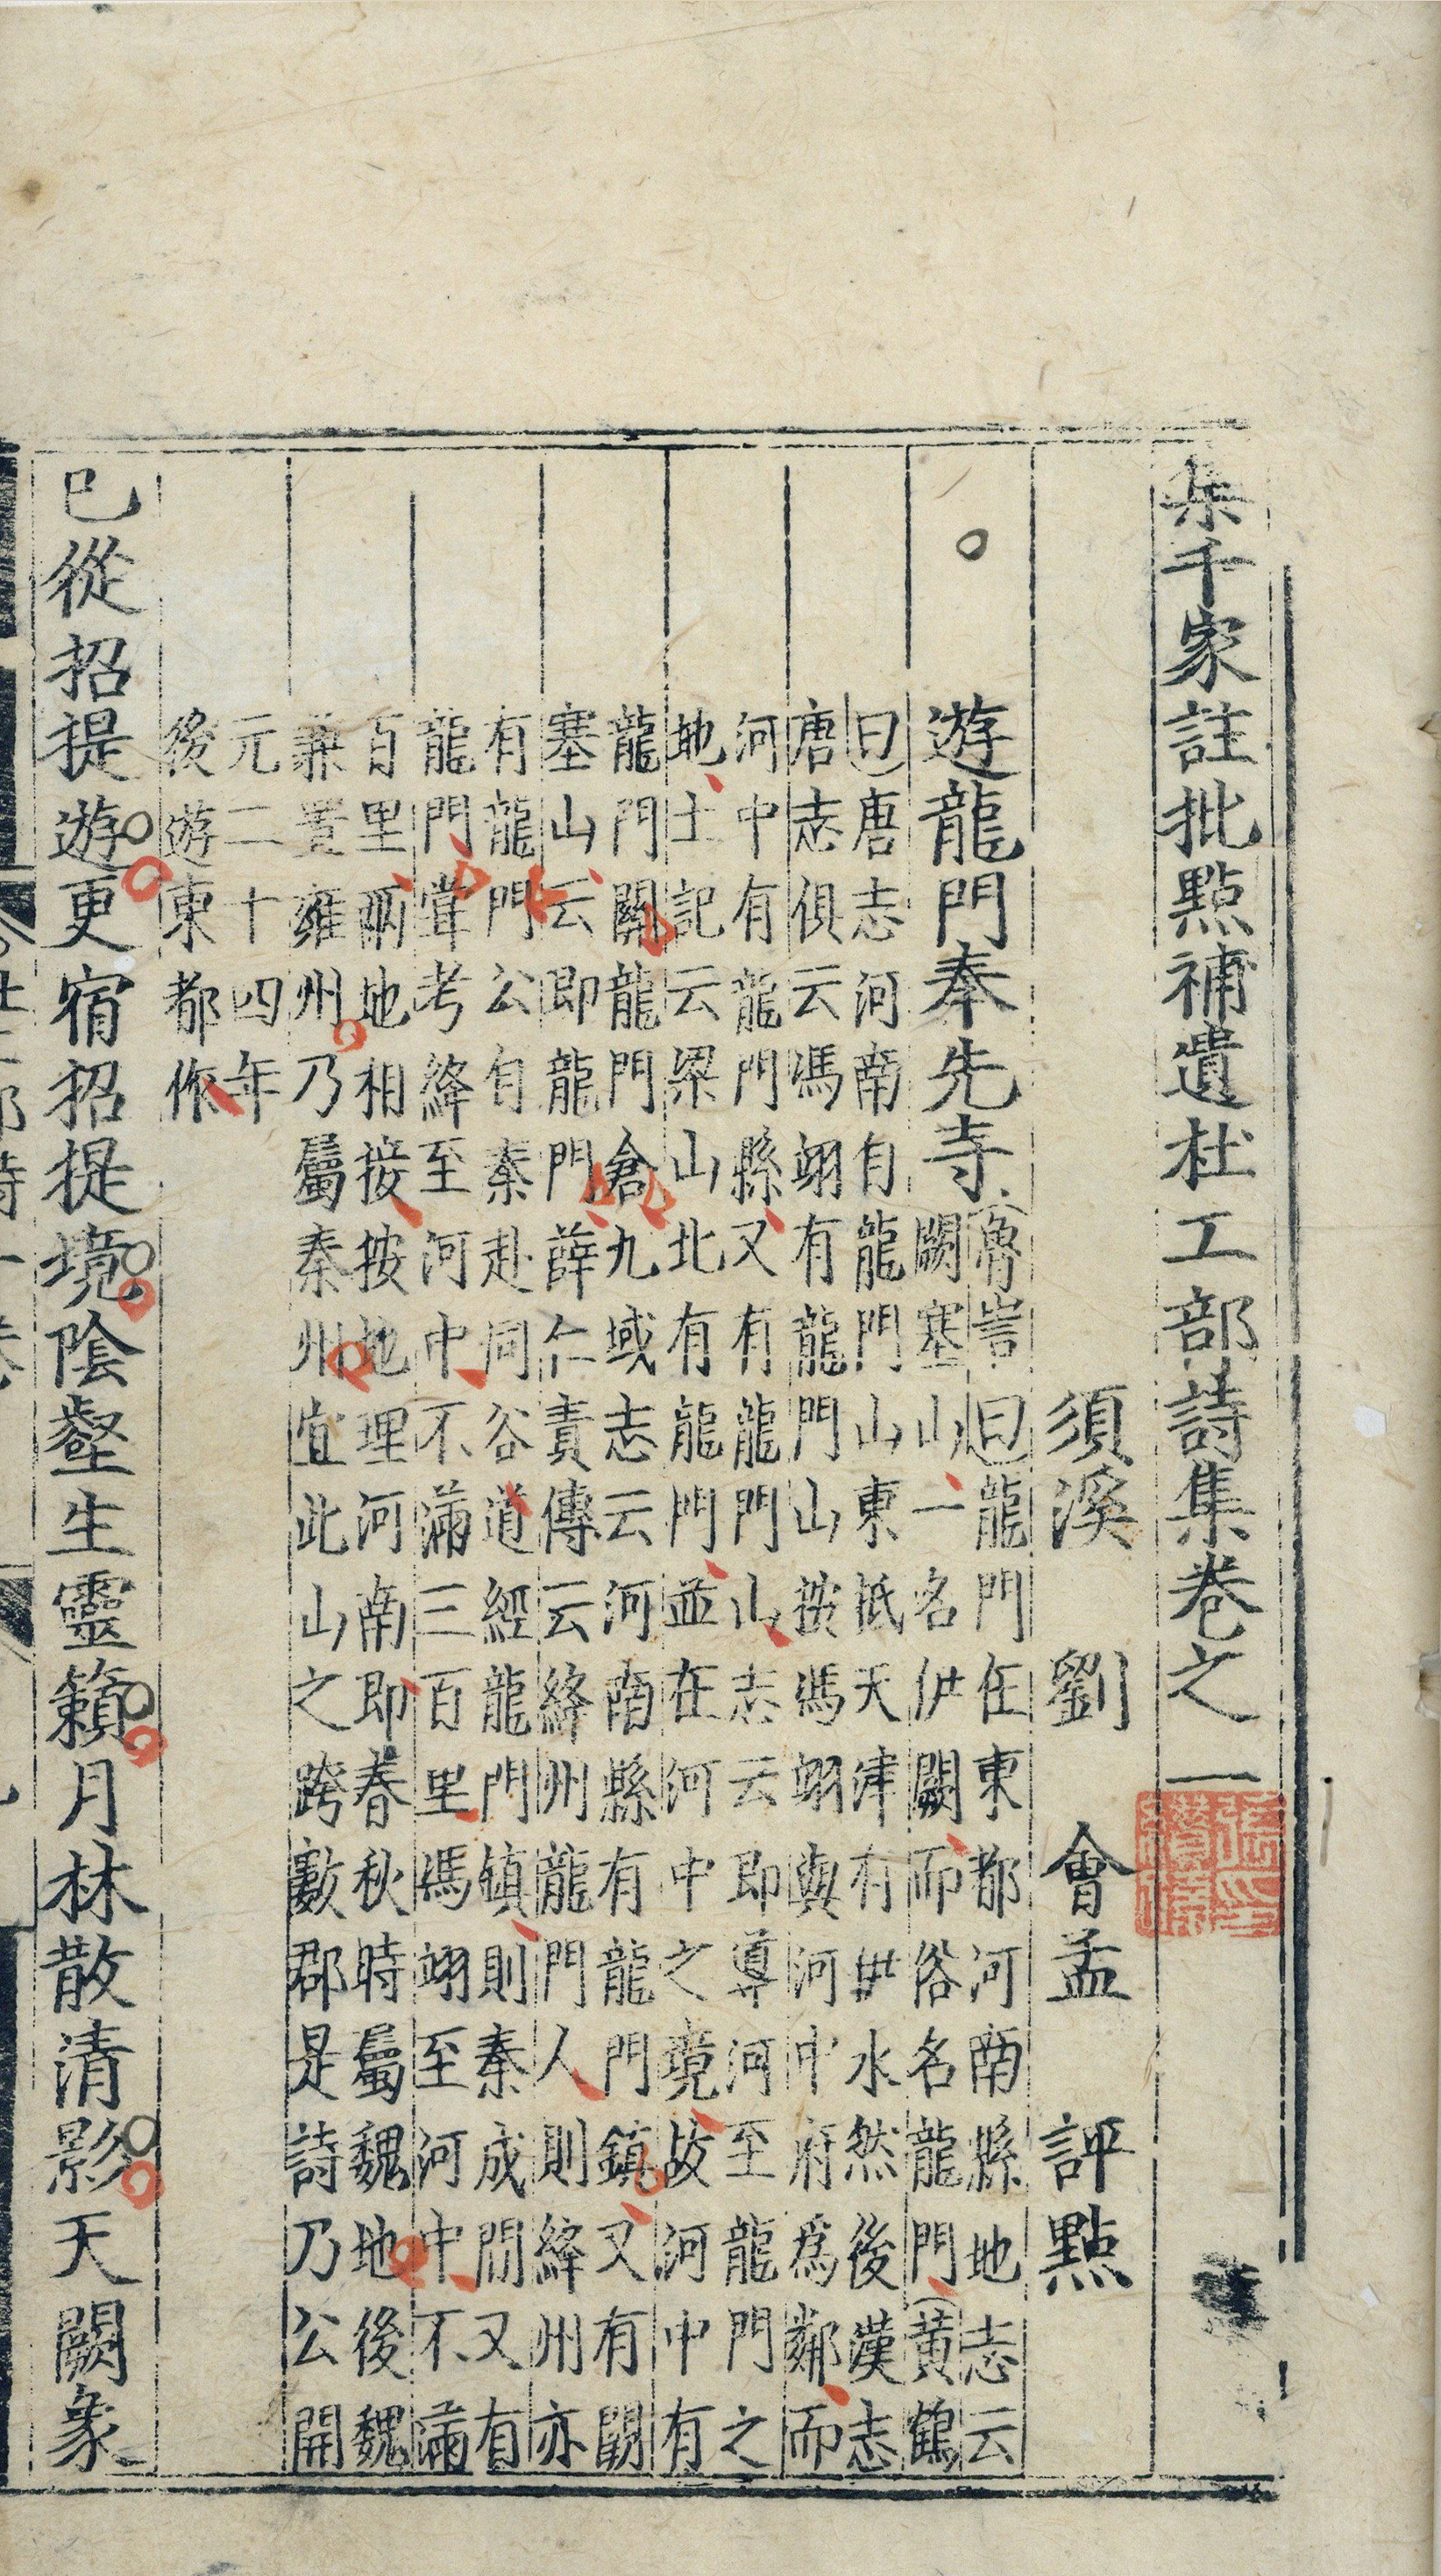 集千家註批點補遺杜工部詩集卷之一
須溪 劉 會孟 評點
遊龍門奉先寺
魯訔曰龍門在東都河南縣地志云
闕塞山一名伊闕而俗名龍門黃鶴
曰唐志河南自龍門山東抵天津有伊水然後漢志
唐志俱云馮翊有龍門山按馮翊與河中府爲鄰而
河中有龍門縣又有龍門山志云即導河至龍門之
地土記云梁山北有龍門並在河中之境故河中有
龍門關龍門倉九域志云河南縣有龍門鎮又有闕
塞山云即龍門薛仁責傳云絳州龍門人則絳州亦
有龍門公自秦赴同谷道經龍門鎮則秦成間又有
龍門甞考絳至河中不滿三百里馮翊至河中不滿
百里兩地相接按地理河南即春秋時屬魏地後魏
兼置雍州乃屬秦州宜此山之跨數郡是詩乃公開
元二十四年
後遊東都作
已從招提遊更宿招提境陰壑生靈籟月林散清影天闕象